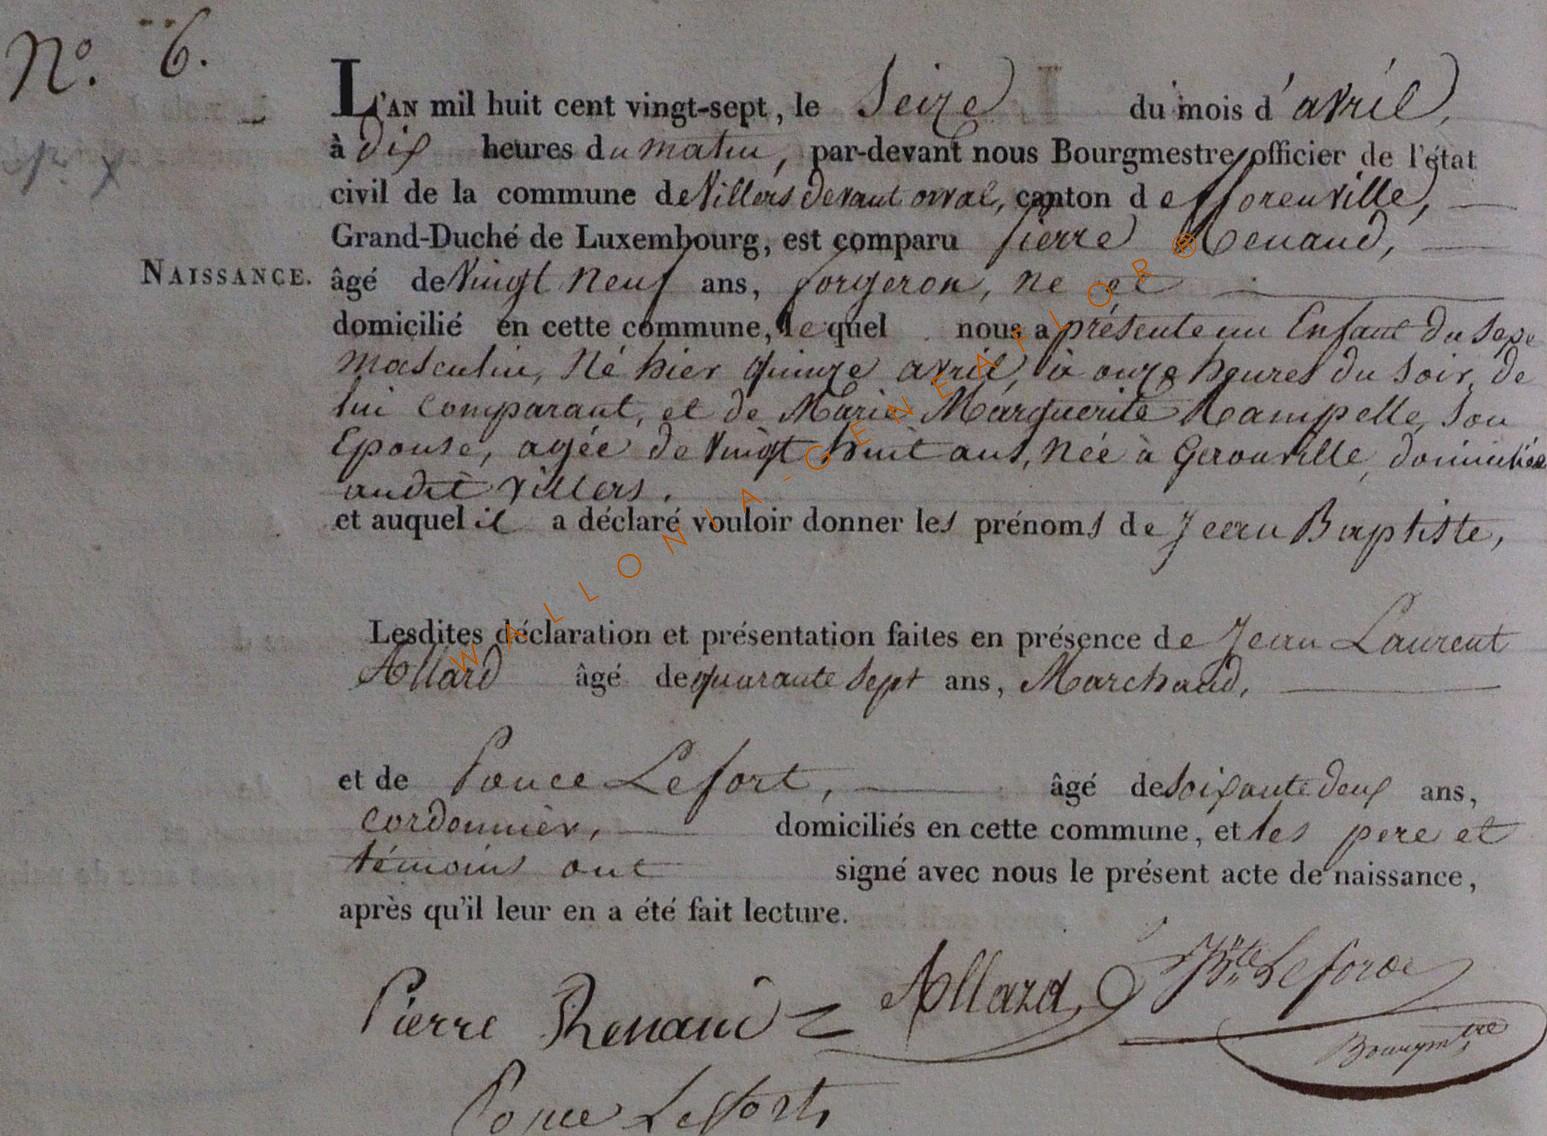 N.º 6.
L'AN mil huit cent vingt-sept, le Seize du mois d'avril,
à dix heures du matin, par-devant nous Bourgmestre, officier de l'état
civil de la commune de Villers devant orval, canton de fflorenville,
Grand-Duché de Luxembourg, est comparu pierre Renaud,
NAISSANCE. âgé de Vingt Neuf ans, forgeron, ne et
domicilié en cette commune, le quel nous a présenté un Enfant du sexe
masculin, Né hier quinze avril, à onze heures du soir, de
lui comparant, et de Marie Marguerite Rampelle, son
Epouse, agée de Vingt huit ans, née à Gerouville, domiciliée
audit Villers.
et auquel il a déclaré vouloir donner les prénoms de Jean Baptiste,
Lesdites déclaration et présentation faites en présence de Jean Laurent
Allard âgé de quarante sept ans, Marchand,
et de Ponce Lefort, âgé de soixante deux ans,
cordonnier, domiciliés en cette commune, et les pere et
témoins ont signé avec nous le présent acte de naissance,
après qu'il leur en a été fait lecture.
Pierre Renaud Allard
Bourgmtre
Ponce Lefort,
WALLONIA-GENEAFLOR®